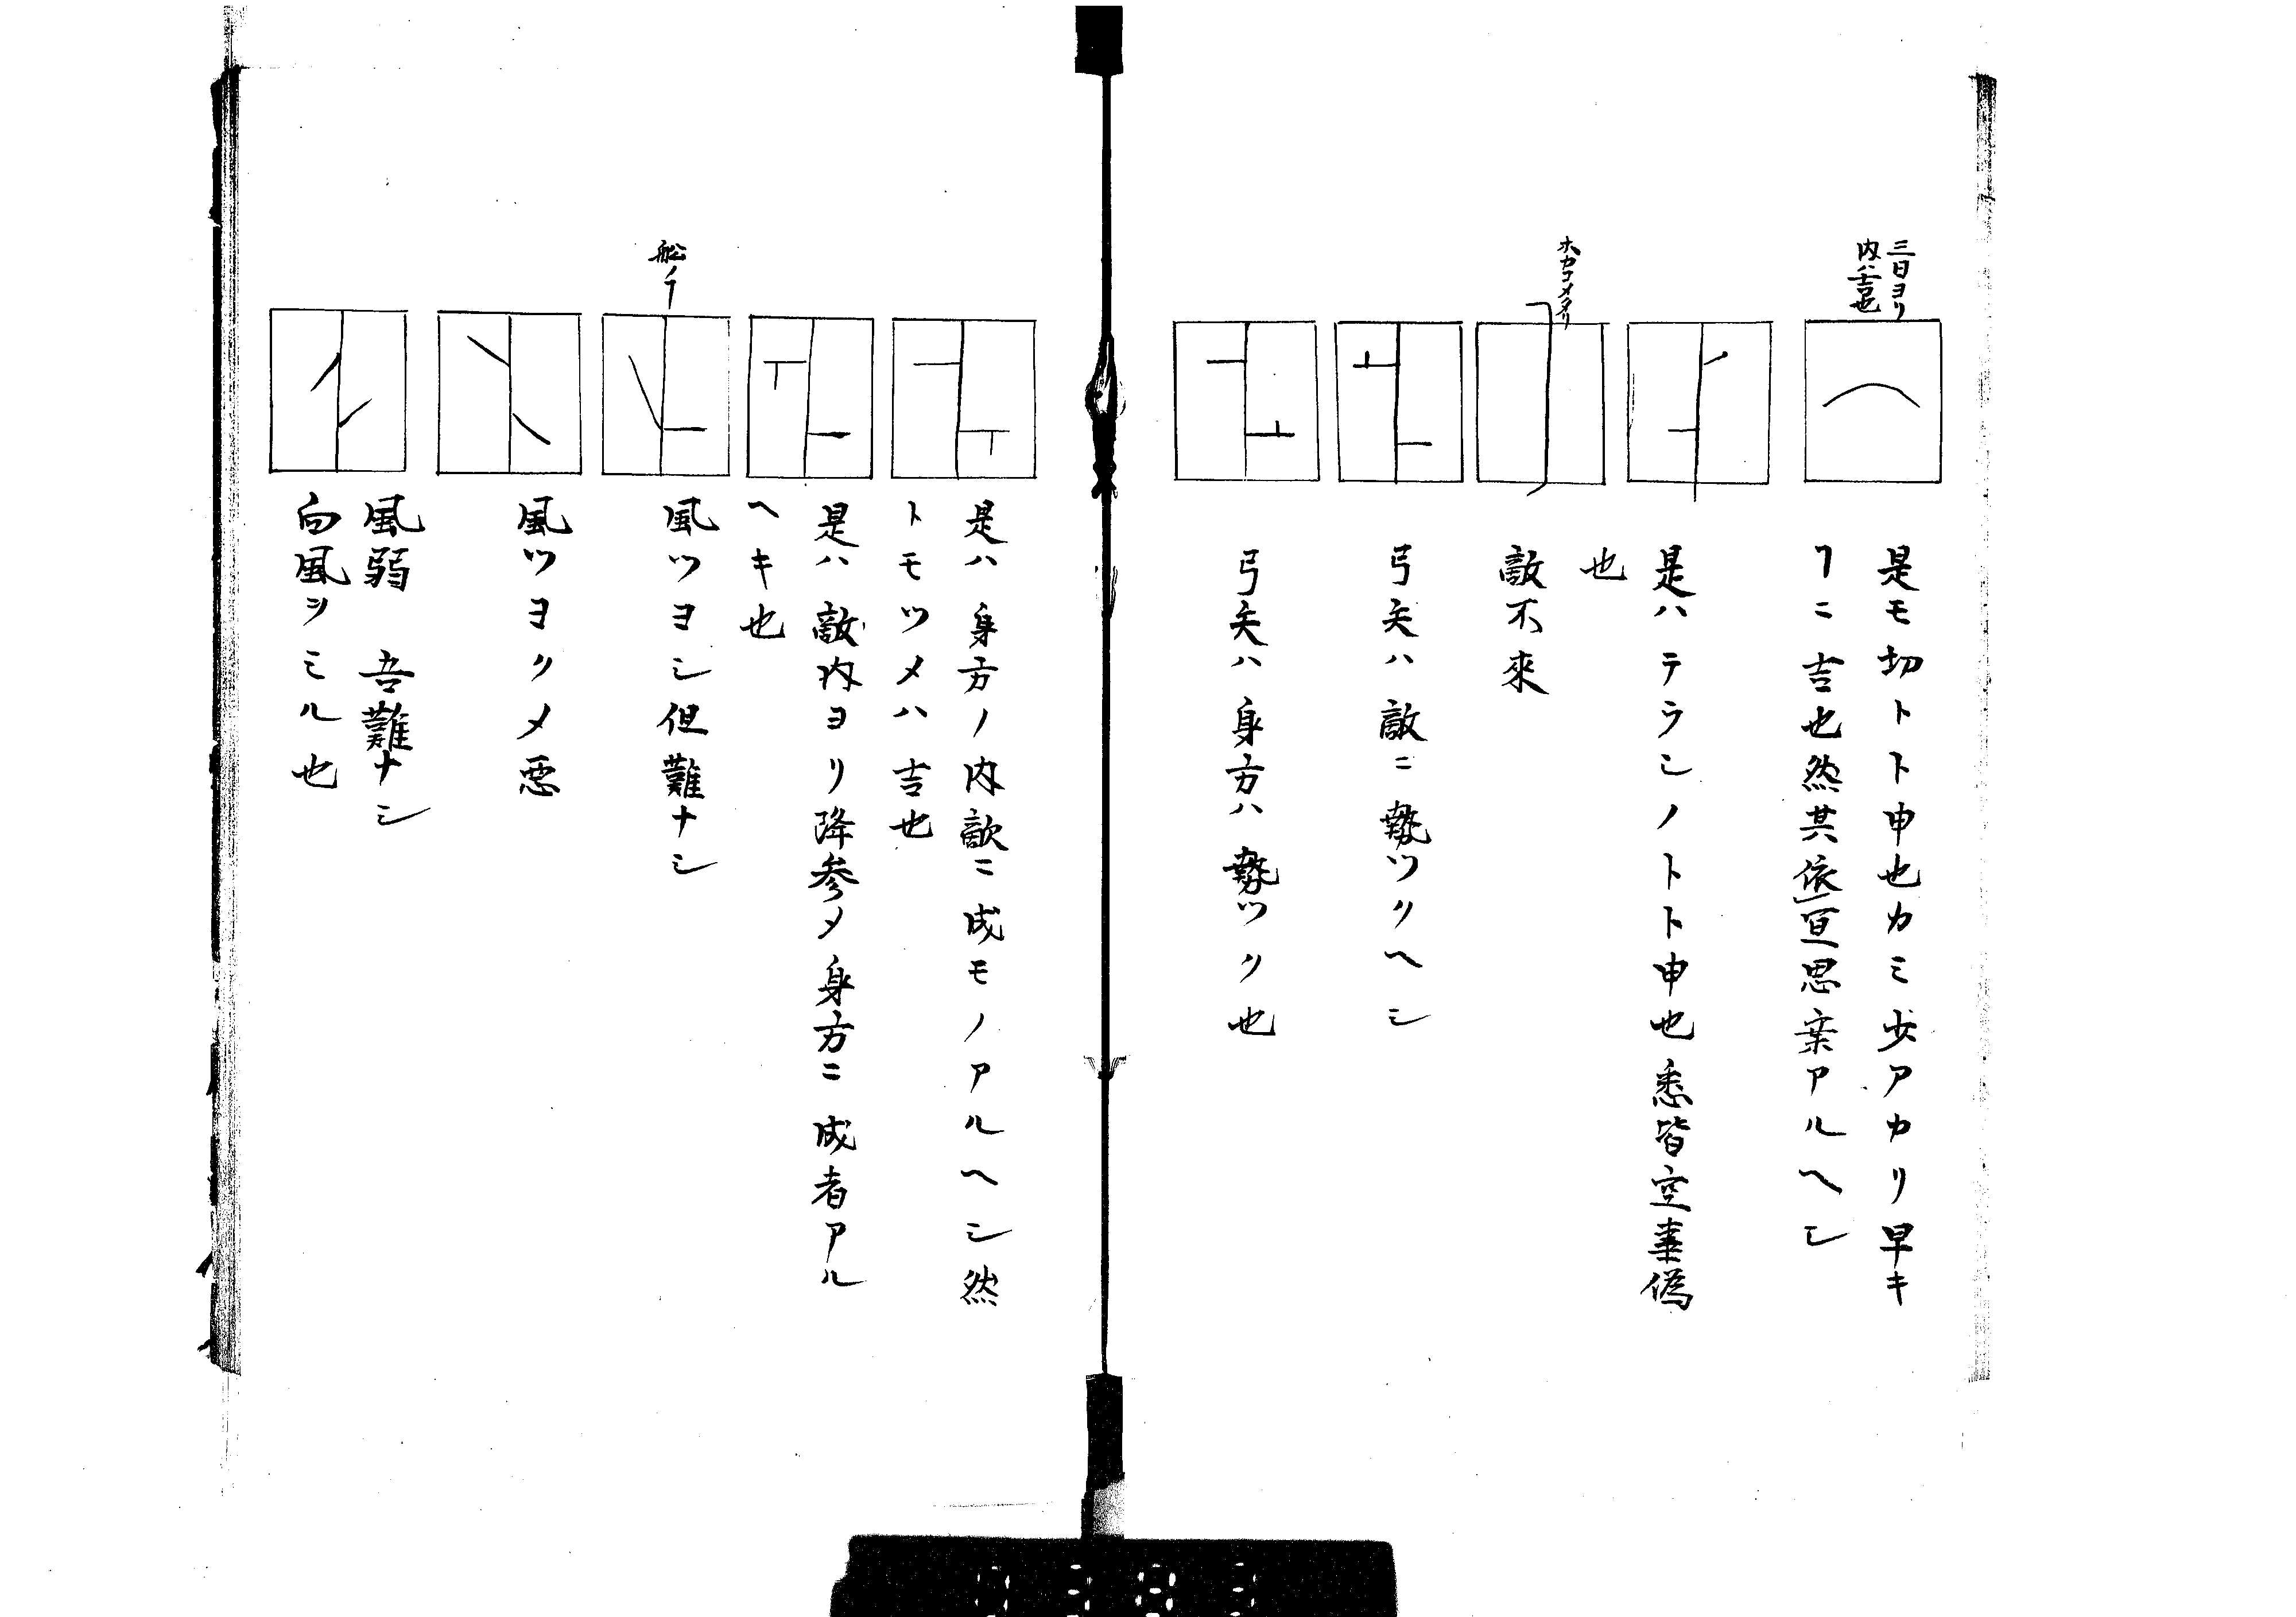 三日ヨリ
内ハ吉也
是モ切トト申也カミ少アカリ早キ
ヿニ吉也然共依事思案アルヘシ
是ハテラシノトト申也悉皆空事偽
也
ホカコメタリ
敵不來
弓矢ハ敵ニ勢ツクヘシ
弓矢ハ身方ハ勢ツク也
是ハ身方ノ内敵ニ成モノアルヘシ然
トモツメハ吉也
是ハ敵内ヨリ降参メ身方ニ成者アル
ヘキ也
船ノヿ
風ツヨシ但難ナシ
風ツヨクメ悪
風弱 吾難ナシ
向風ヲミル也